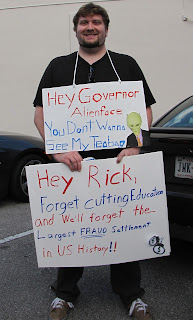 Hey Governor
Alienface
You Don't Wanna
See My Teabag
Hey Rick,
Forget cutting Education
and We'll forget the
Largest FRAUD Settlement
in US History!!